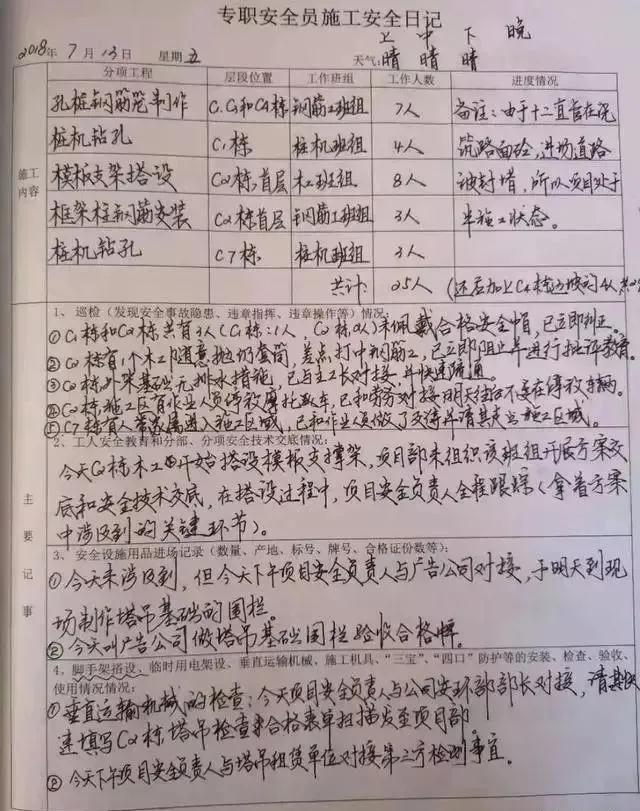 专职安全员施工安全日记
上 中 下 晚
2018年 7月 13日 星期五 天气: 晴 晴 晴
分项工程 层段位置 工作班组 工作人数 进度情况
孔桩钢筋笼制作 钢筋工班组 7人 备注:由于十二直管在浇
桩机钻孔 C1栋 桩机班组 4人 筑路面砼,进场道路
施工内容
模板支架搭设 C2栋首层 木工班组 8人 被封堵,所以项目处于
框架柱钢筋安装 C2栋首层 钢筋工班组 3人 半施工状态。
桩机钻孔 C7栋 桩机班组 3人
共计: 25人
1、巡检(发现安全事故隐患、违章指挥、违章操作等)情况:
①C1栋和C2栋共有3人(C1栋:1人,C2栋2人)未佩戴合格安全帽,已立即纠正。
②C2栋有1个木工随意抛扔套筒,差点打中钢筋工,已立即阻止并进行批评教育。
③C2栋外架基础无排水措施,已与主工长对接,并快速疏通。
④C2栋施工区有作业人员停放摩托车,已和劳务对接明天往后不要在停放车辆。
⑤C7栋有人带家属进入施工区域,已和作业人员做了交待并请其走出施工区域。
2、工人安全教育和分部、分项安全技术交底情况:
今天C2栋木工开始搭设模板支撑架,项目部未组织该班组开展方案交
底和安全技术交底,在搭设过程中,项目安全负责人全程跟踪(拿着方案
中涉及到的关键环节)。
主要记事
3、安全设施用品进场记录(数量、产地、标号、牌号、合格证份数等):
①今天未涉及到,但今天下午项目安全负责人与广告公司对接,于明天到现
场制作塔吊基础的围栏。
②今天叫广告公司做塔吊基础围栏验收合格牌。
4、脚手架搭设、临时用电架设、垂直运输机械、施工机具、“三宝”、“四口”防护等的安装、检查、验收、
使用情况情况:
①垂直运输机械的检查:今天项目安全负责人与公司安环部部长对接,请其快
速填写C2栋塔吊检查合格表单扫描发至项目部。
②今天下午项目安全负责人与塔吊租赁单位对接第三方检测事宜。